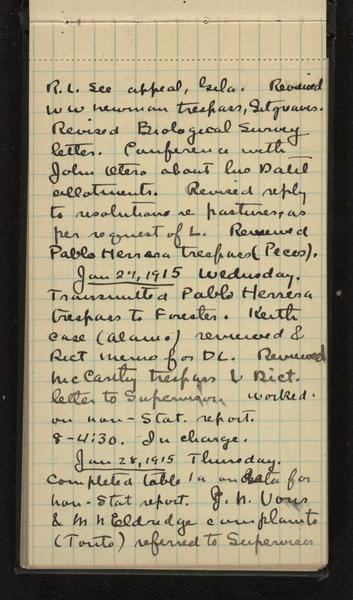 R. L. See appeal, Gila. Reviewed
W W Newman trespass, Sitgreaves.
Revised Biological Survey
letter. Conference with
John Otero about his Datil
allotments. Revised reply
to resolutions re pastures, as
per request of L. Reviewed
Pablo Herrera trespass (Pecos).
Jan 27, 1915 Wednesday.
Transmitted Pablo Herrera
trespass to Forester. Keith
case (Alamo) reviewed &
Dict memo for DL. Reviewed
McCarthy trespass & Dict.
letter to Supervisor, worked
on non-Stat. report.
8-4:30. In charge.
Jan 28, 1915 Thursday.
Completed table 1a on data for
non-Stat report. J. N.
& M N Eldredge complaints
(Tonto) referred to Supervisor